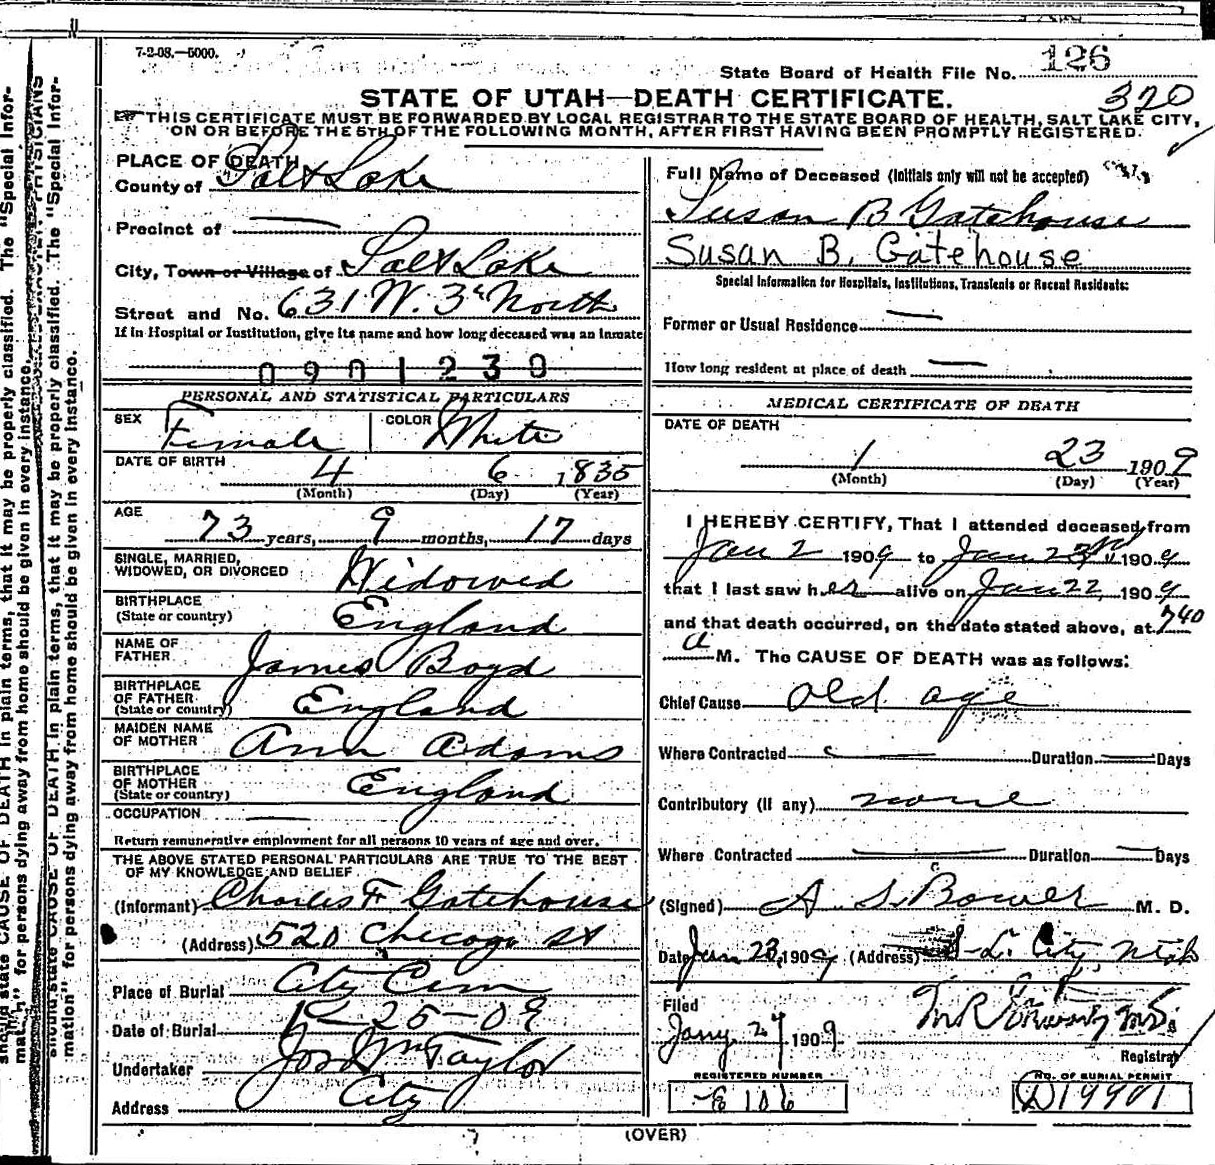 7-2-08.—5000.
State Board of Health File No. 126
320
STATE OF UTAH—DEATH CERTIFICATE.
THIS CERTIFICATE MUST BE FORWARDED BY LOCAL REGISTRAR TO THE STATE BOARD OF HEALTH, SALT LAKE CITY,
ON OR BEFORE THE 5TH OF THE FOLLOWING MONTH, AFTER FIRST HAVING BEEN PROMPTLY REGISTERED.
PLACE OF DEATH
County of Salt Lake
Precinct of —
City, Town or Village of Salt Lake
Street and No. 631 W. 3d North
If in Hospital or Institution, give its name and how long deceased was an inmate
0901230
PERSONAL AND STATISTICAL PARTICULARS
SEX Female COLOR White
DATE OF BIRTH 4 6 1835
(Month) (Day) (Year)
AGE 73 years, 9 months, 17 days
SINGLE, MARRIED,
WIDOWED, OR DIVORCED Widowed
BIRTHPLACE
(State or country) England
NAME OF
FATHER James Boyd
BIRTHPLACE
OF FATHER
(State or country) England
MAIDEN NAME
OF MOTHER Ann Adams
BIRTHPLACE
OF MOTHER
(State or country) England
OCCUPATION —
Return remunerative employment for all persons 10 years of age and over.
THE ABOVE STATED PERSONAL PARTICULARS ARE TRUE TO THE BEST
OF MY KNOWLEDGE AND BELIEF
(Informant) Charles F Gatehouse
(Address) 520 Chicago St
Place of Burial City Cem
Date of Burial 1-25-09
Undertaker Jos Wm Taylor
Address City
Full Name of Deceased (Initials only will not be accepted)
Susan B Gatehouse
Susan B. Gatehouse
Special Information for Hospitals, Institutions, Transients or Recent Residents:
Former or Usual Residence —
How long resident at place of death —
MEDICAL CERTIFICATE OF DEATH
DATE OF DEATH
1 23 1909
(Month) (Day) (Year)
I HEREBY CERTIFY, That I attended deceased from
Jan 2 1909 to Jan 23rd 1909
that I last saw her alive on Jan 22, 1909
and that death occurred, on the date stated above, at 7 40
a M. The CAUSE OF DEATH was as follows:
Chief Cause old age
Where Contracted — Duration — Days
Contributory (if any) none
Where Contracted — Duration — Days
(Signed) A. S. Bower M. D.
Date Jan 23, 1909 (Address) S-L. City, Utah
Filed
Jany. 24 1909
Registrar
REGISTERED NUMBER
E 106
NO. OF BURIAL PERMIT
D19901
(OVER)
should state CAUSE OF DEATH in plain terms, that it may be properly classified. The "Special Information" for persons dying away from home should be given in every instance.